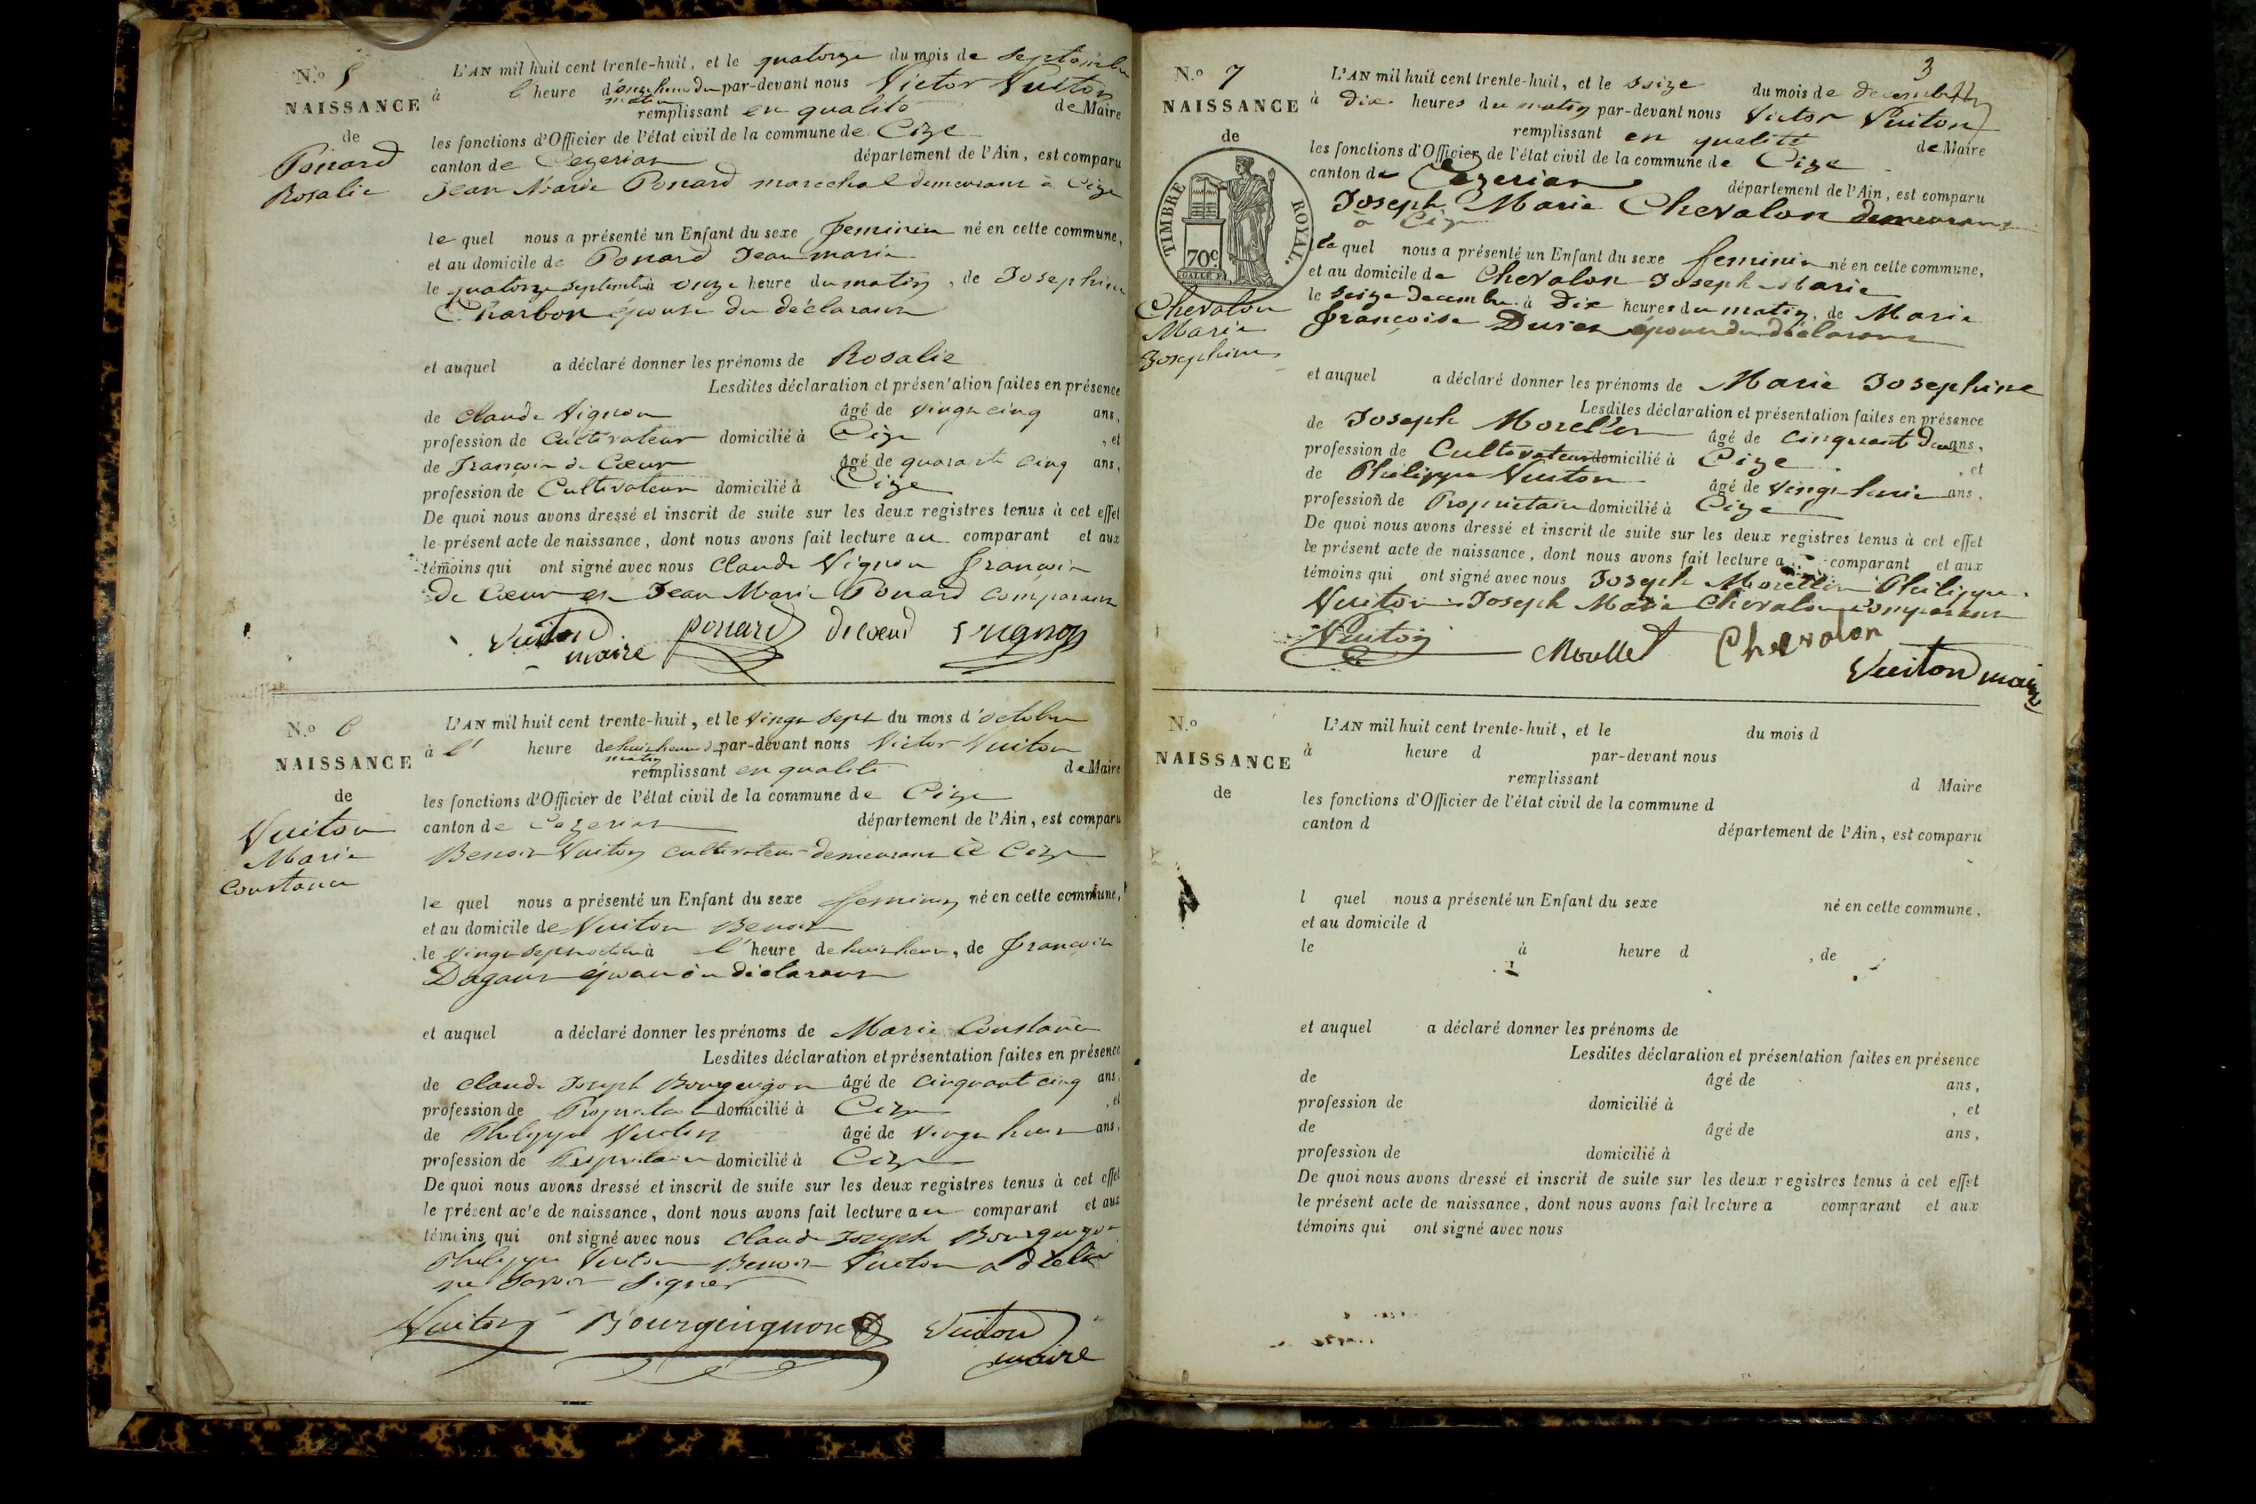 N.º 5
NAISSANCE
de
Ponard
Rosalie
L'AN mil huit cent trente-huit, et le quatorze du mois de septembre
à l heure d'onze heures du matin par-devant nous Victor Vuiton
remplissant en qualité de Maire
les fonctions d'Officier de l'état civil de la commune de Cize
canton de Cezeriat département de l'Ain, est comparu
Jean Marie Ponard marechal demeurant à Cize
le quel nous a présenté un Enfant du sexe feminin né en cette commune,
et au domicile de Ponard Jean marie
le quatorze septembre à onze heure du matin, de Josephine
Charbon épouse du déclarant
et auquel a déclaré donner les prénoms de Rosalie
Lesdites déclaration et présentation faites en présence
de Claude Vignon âgé de vingt cinq ans,
profession de Cultivateur domicilié à Cize, et
de Francois de Coeur âgé de quarante cinq ans,
profession de Cultivateur domicilié à Cize
De quoi nous avons dressé et inscrit de suite sur les deux registres tenus à cet effet
le présent acte de naissance, dont nous avons fait lecture au comparant et aux
témoins qui ont signé avec nous Claude Vignon francois
de Coeur et Jean Marie Ponard comparant
Vuiton ponard decoeur vugnon
maire
N.º 6
NAISSANCE
de
Vuiton
Marie
Constance
L'AN mil huit cent trente-huit, et le vingt sept du mois d'octobre
à l' heure de huit heures du matin par-devant nous Victor Vuiton
remplissant en qualité de Maire
les fonctions d'Officier de l'état civil de la commune de Cize
canton de Cezeriat département de l'Ain, est comparu
Benoit Vuiton cultivateur demeurant à Cize
le quel nous a présenté un Enfant du sexe feminin né en cette commune,
et au domicile de Vuiton Benoit
le vingt sept octobre à l'heure de huit heures, de francoise
Dagaut épouse du déclarant
et auquel a déclaré donner les prénoms de Marie Constance
Lesdites déclaration et présentation faites en présence
de Claude Joseph Bourguignon âgé de cinquante cinq ans,
profession de Propriétaire domicilié à Cize, et
de Philippe Vuiton âgé de vingt huit ans,
profession de Propriétaire domicilié à Cize
De quoi nous avons dressé et inscrit de suite sur les deux registres tenus à cet effet
le présent acte de naissance, dont nous avons fait lecture au comparant et aux
témoins qui ont signé avec nous Claude Joseph Bourguignon
Philippe Vuiton Benoit Vuiton a déclaré
ne savoir signer
Vuiton Bourguignon Vuiton
maire
3
N.º 7
NAISSANCE
de
TIMBRE ROYAL.
70c
Chevalon
Marie
Josephine
L'AN mil huit cent trente-huit, et le seize du mois de decembre
à dix heures du matin par-devant nous Victor Vuiton
remplissant en qualité de Maire
les fonctions d'Officier de l'état civil de la commune de Cize
canton de Cezeriat département de l'Ain, est comparu
Joseph Marie Chevalon demeurant
à Cize
le quel nous a présenté un Enfant du sexe feminin né en cette commune,
et au domicile de Chevalon Joseph Marie
le seize decembre à dix heures du matin, de Marie
françoise épouse du déclarant
et auquel a déclaré donner les prénoms de Marie Josephine
Lesdites déclaration et présentation faites en présence
de Joseph Morellet âgé de cinquante deux ans,
profession de Cultivateur domicilié à Cize, et
de Philippe Vuiton âgé de vingt huit ans,
profession de Propriétaire domicilié à Cize
De quoi nous avons dressé et inscrit de suite sur les deux registres tenus à cet effet
le présent acte de naissance, dont nous avons fait lecture a comparant et aux
témoins qui ont signé avec nous Joseph Morellet Philippe
Vuiton Joseph Marie Chevalon comparant
Vuiton Morellet Chevalon
Vuiton maire
N.º
NAISSANCE
de
L'AN mil huit cent trente-huit, et le du mois d
à heure d par-devant nous
remplissant d Maire
les fonctions d'Officier de l'état civil de la commune d
canton d département de l'Ain, est comparu
l quel nous a présenté un Enfant du sexe né en cette commune,
et au domicile d
le à heure d , de
et auquel a déclaré donner les prénoms de
Lesdites déclaration et présentation faites en présence
de âgé de ans,
profession de domicilié à , et
de âgé de ans,
profession de domicilié à
De quoi nous avons dressé et inscrit de suite sur les deux registres tenus à cet effet
le présent acte de naissance, dont nous avons fait lecture a comparant et aux
témoins qui ont signé avec nous